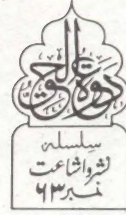 دعوة الحق
سلسلہ
نشر واشاعت
نمبر ۶۳